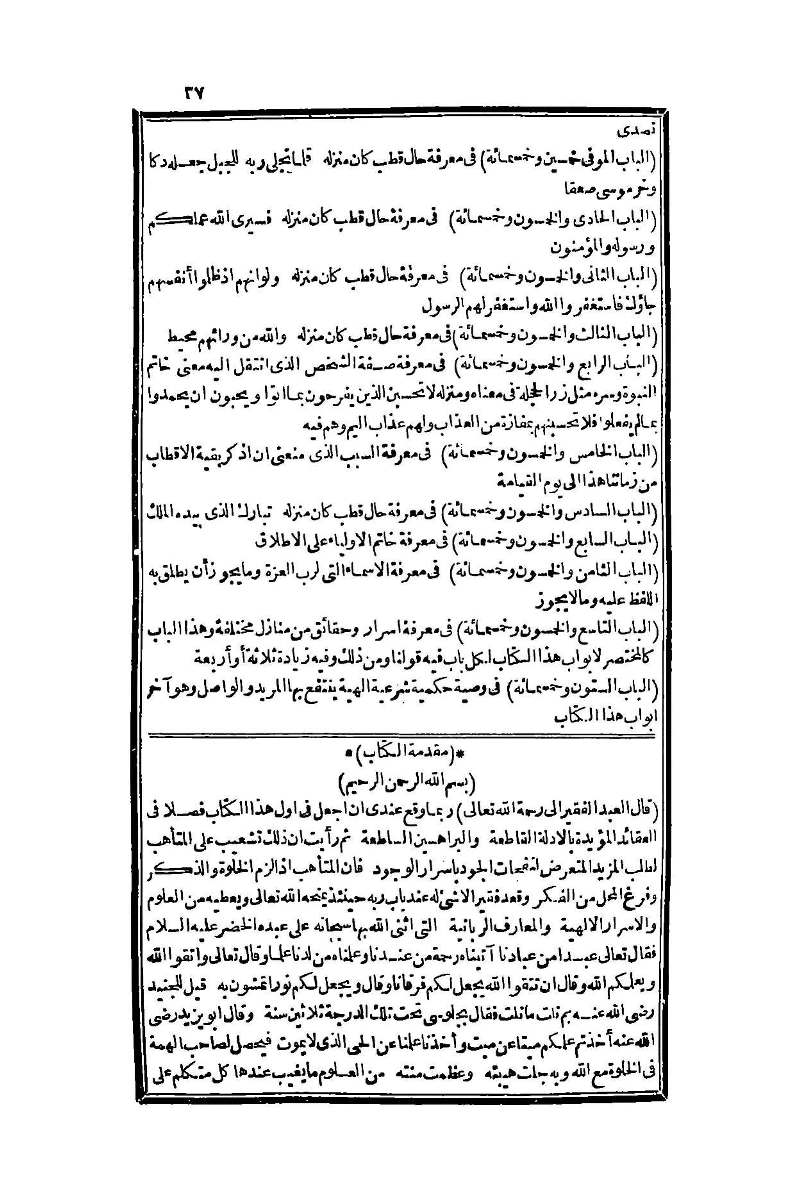 ٣٧
تصدى
(الباب الموفى خمسين وخمسمائة) فى معرفة حال قطب كان منزله فلما تجلى ربه للجبل جعله دكا
وخر موسى صعقا
(الباب الحادى والخمسون وخمسمائة) فى معرفة حال قطب كان منزله فسيرى الله عملكم
ورسوله والمؤمنون
(الباب الثانى والخمسون وخمسمائة) فى معرفة حال قطب كان منزله ولو انهم اذ ظلموا أنفسهم
جاؤك فاستغفروا الله واستغفر لهم الرسول
(الباب الثالث والخمسون وخمسمائة) فى معرفة حال قطب كان منزله والله من ورائهم محيط
(الباب الرابع والخمسون وخمسمائة) فى معرفة صفة الشخص الذى انتقل اليه معنى خاتم
النبوة وسره مثل زر الحجلة فى معناه ومنزله لا تحسبن الذين يفرحون بما اتوا ويحبون ان يحمدوا
بما لم يفعلوا فلا تحسبنهم بمفازة من العذاب ولهم عذاب اليم وهم فيه
(الباب الخامس والخمسون وخمسمائة) فى معرفة السبب الذى منعنى ان اذكر بقية الاقطاب
من زماننا هذا الى يوم القيامة
(الباب السادس والخمسون وخمسمائة) فى معرفة حال قطب كان منزله تبارك الذى بيده الملك
(الباب السابع والخمسون وخمسمائة) فى معرفة خاتم الاولياء على الاطلاق
(الباب الثامن والخمسون وخمسمائة) فى معرفة الاسماء التى لرب العزة وما يجوز أن يطلق به
اللفظ عليه وما لا يجوز
(الباب التاسع والخمسون وخمسمائة) فى معرفة اسرار وحقائق من منازل مختلفة وهذا الباب
كالمختصر لابواب هذا الكتاب لكل باب فيه قولنا ومن ذلك وفيه زيادة ثلاثة أو أربعة
(الباب الستون وخمسمائة) فى وصية حكمية شرعية الهية ينتفع بها المريد والواصل وهو آخر
ابواب هذا الكتاب
*(مقدمة الكتاب)*
(بسم الله الرحمن الرحيم)
(قال العبد الفقير الى رحمة الله تعالى) ربما وقع عندى ان اجعل فى اول هذا الكتاب فصلا فى
العقائد المؤيدة بالادلة القاطعة والبراهين الساطعة ثم رأيت ان ذلك تشعيب على المتأهب
لطلب المزيد المتعرض لنفحات الجود باسرار الوجود فان المتأهب اذا لزم الخلوة والذكر
وفرغ المحل من الفكر وقعد فقيرا لاشئ له عند باب ربه حينئذ يمنحه الله تعالى ويعطيه من العلوم
والاسرار الالهية والمعارف الربانية التى اثنى الله بها سبحانه على عبده الخضر عليه السلام
فقال تعالى عبدا من عبادنا آتيناه رحمة من عندنا وعلمناه من لدنا علما وقال تعالى واتقوا الله
ويعلمكم الله وقال ان تتقوا الله يجعل لكم فرقانا وقال ويجعل لكم نورا تمشون به قيل للجنيد
رضى الله عنه بم نلت ما نلت فقال بجلوسى تحت تلك الدرجة ثلاثين سنة وقال ابو يزيد رضى
الله عنه أخذتم علمكم ميتا عن ميت وأخذنا علمنا عن الحى الذى لا يموت فيحصل لصاحب الهمة
فى الخلوة مع الله وبه جلت هيبته وعظمت منته من العلوم ما يغيب عندها كل متكلم على